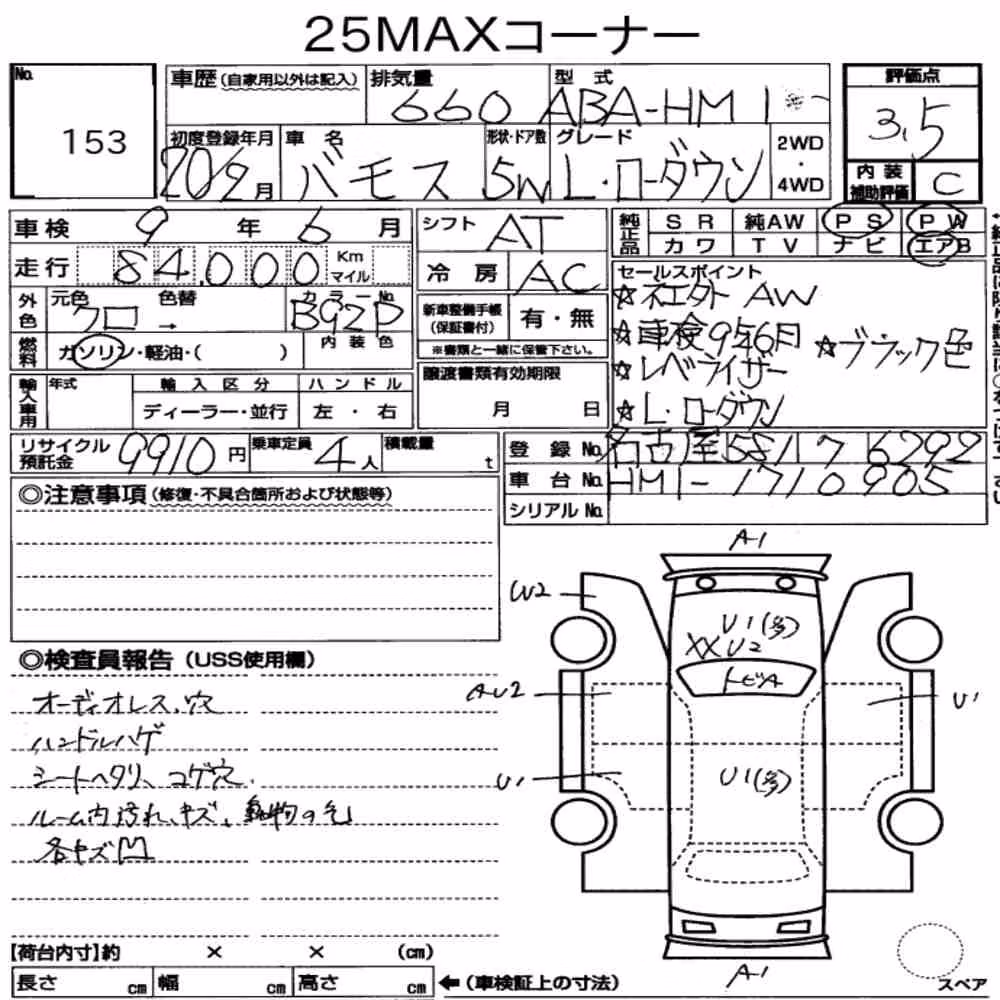 25MAXコーナー
No. 153
車歴(自家用以外は記入)
排気量 660
型式 ABA-HM1
評価点 3.5
初度登録年月 20/2月
車名 バモス
形状・ドア数 5W
グレード L・ローダウン
2WD・4WD
内装補助評価 C
車検 9年6月
シフト AT
純正品 SR 純AW PS PW
カワ TV ナビ エアB
走行 84,000 Km マイル
冷房 AC
セールスポイント
☆ネエクト AW
☆車検9年6月
☆ブラック色
☆レベライザー
☆L・ローダウン
外色 元色 クロ → 色替
カラーNo. B92P
内装色
新車整備手帳(保証書付) 有・無
※書類と一緒に保管下さい。
燃料 ガソリン・軽油・( )
譲渡書類有効期限
月 日
輸入車用 年式 輸入区分 ハンドル
ディーラー・並行 左・右
リサイクル預託金 9910円
乗車定員 4人
積載量 t
登録No. 名古屋 581 7 6292
車台No. HM1-1710905
シリアルNo.
◎注意事項(修復・不具合箇所および状態等)
◎検査員報告(USS使用欄)
オーディオレス、穴
ハンドルハゲ
シートヘタリ、コゲ穴、
ルーム内汚れ、キズ、動物の毛
各キズ凹
A-1
W2
U1(多)
XX U2
トビA
AU2
U1
U1
U1(多)
A-1
【荷台内寸】約 × × (cm)
長さ cm 幅 cm 高さ cm
←(車検証上の寸法)
スペア